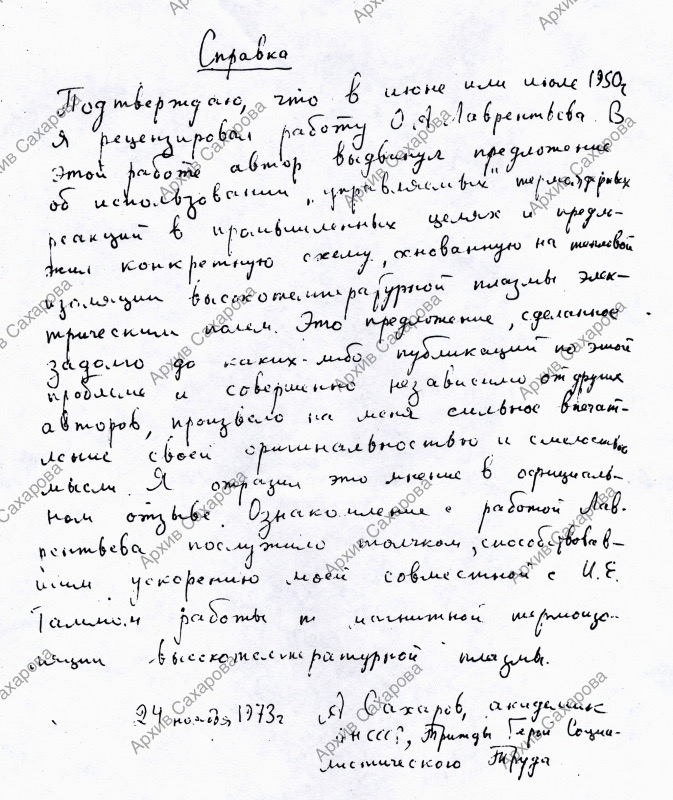 Справка
Подтверждаю, что в июне или июле 1950г
я рецензировал работу О.А. Лаврентьева. В
этой работе автор выдвинул предложение
об использовании „управляемых" термоядерных
реакций в промышленных целях и предло-
жил конкретную схему, основанную на тепловой
изоляции высокотемпературной плазмы элек-
трическим полем. Это предложение, сделанное
задолго до каких-либо публикаций по этой
проблеме и совершенно независимо от других
авторов, произвело на меня сильное впечат-
ление своей оригинальностью и смелостью
мысли. Я отразил это мнение в официаль-
ном отзыве. Ознакомление с работой Лав-
рентьева послужило толчком, способствовав-
шим ускорению моей совместной с И.Е.
Таммом работы по магнитной термоизо-
ляции высокотемпературной плазмы.
24 ноября 1973г А Сахаров, академик
АН СССР, Трижды Герой Социа-
листического Труда
Архив Сахарова